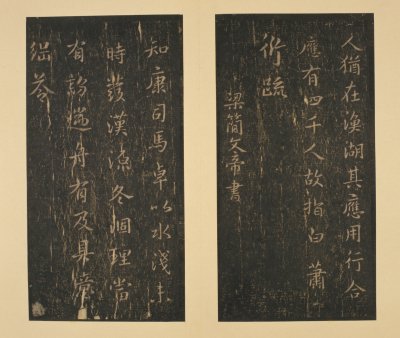 人猶在漁湖其應用行合
應有四千人故指白 蕭
衍疏
梁簡文帝書
知康司馬卓以水淺未
時發漢流冬涸理當
有勞遞舟有及具
綱答